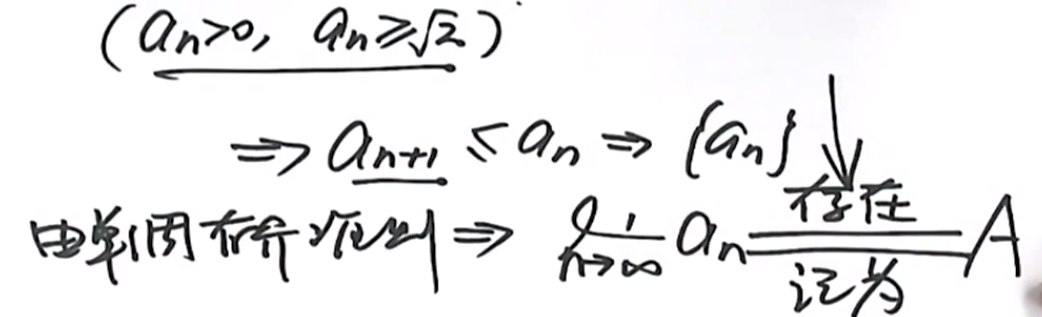 (aₙ>0, aₙ≥√2)
⇒ aₙ₊₁ ≤ aₙ ⇒ {aₙ} ↓
由单调有界准则 ⇒ lim n→∞ aₙ 存在 记为 A